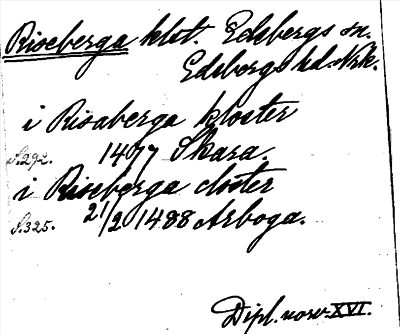 Riseberga klst. Edsbergs sn.
Edsbergs hd. Nrk.
i Risaberga kloster
S. 292. 1477 Skara.
i Riseberga closter
S. 325. 21/2 1488 Arboga.
Dipl. norv. XVI.